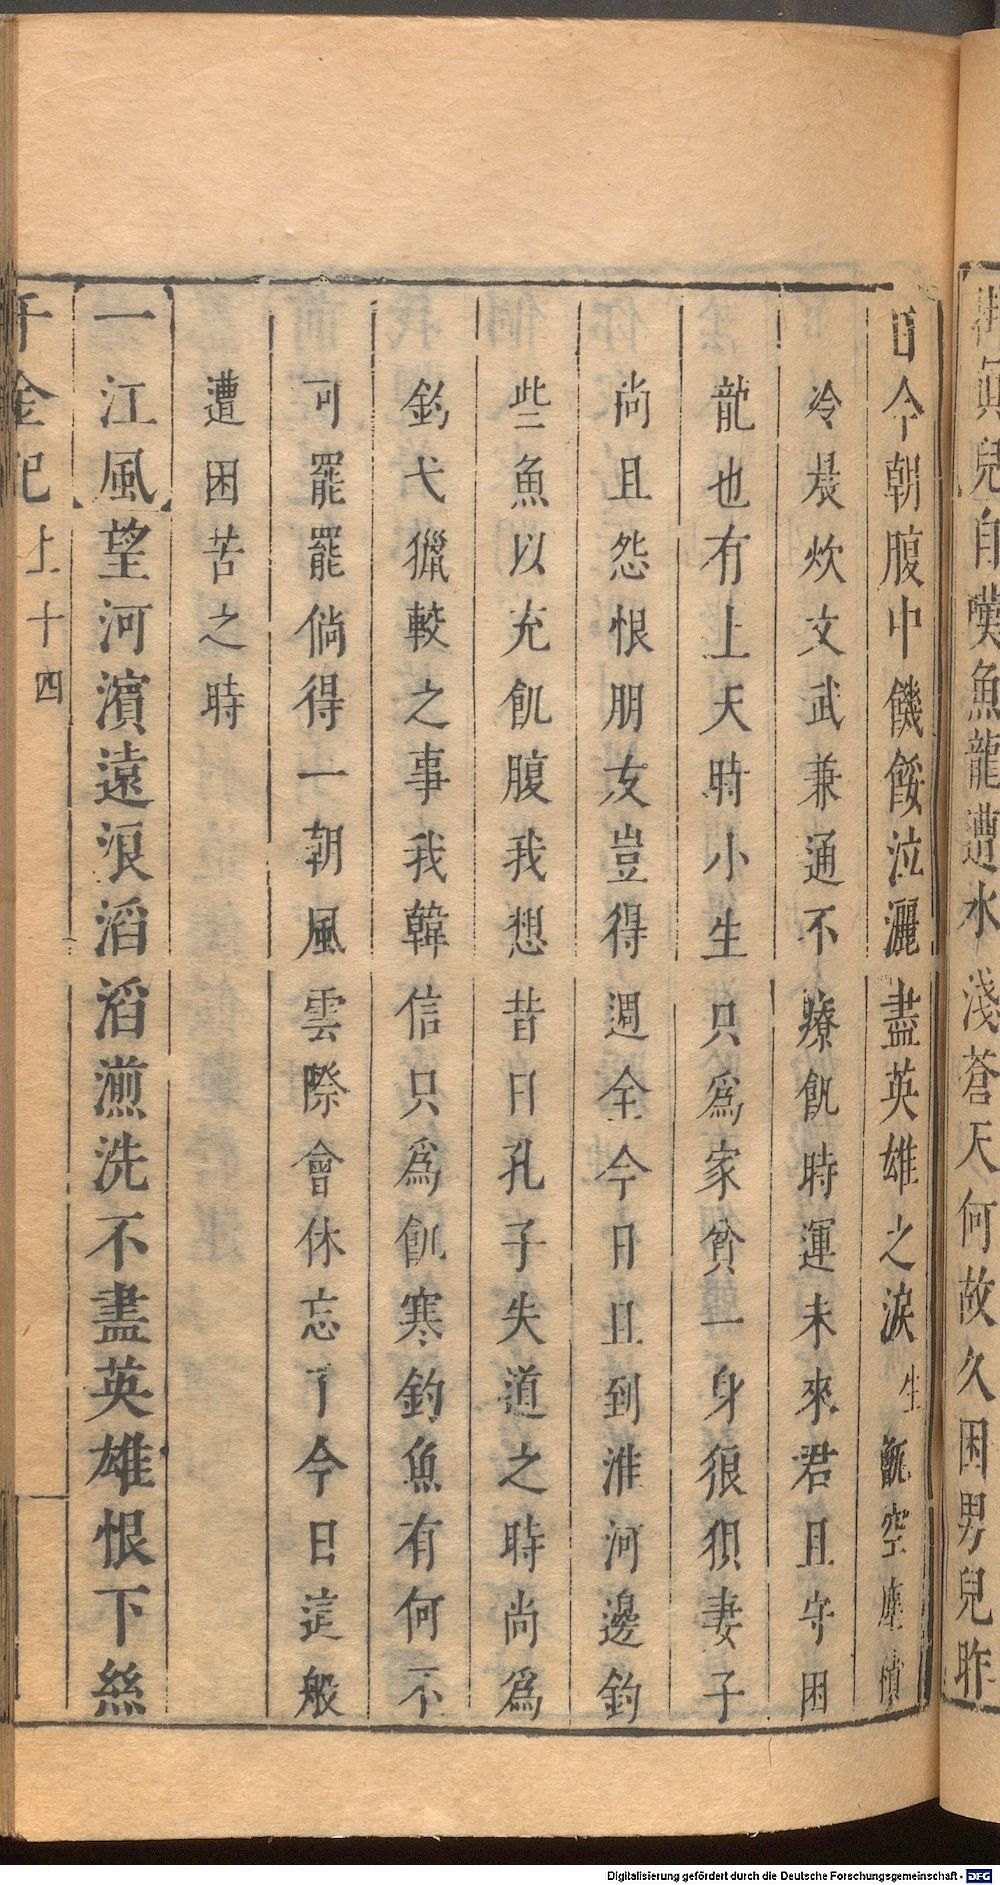 眞兒 自嘆魚龍遭水淺蒼天何故久困男兒昨
日今朝腹中饑餒泣灑盡英雄之淚生甑空塵積
冷晨炊文武兼通不療飢時運未來君且守困
龍也有上天時小生只爲家貧一身狼狽妻子
尚且怨恨朋友豈得週全今日且到淮河邊釣
些魚以充飢腹我想昔日孔子失道之時尚爲
釣弋獵較之事我韓信只爲飢寒釣魚有何不
可罷罷倘得一朝風雲際會休忘了今日這般
遭困苦之時
一江風 望河濱遠浪滔滔湮洗不盡英雄恨下絲
千金記上十四
Digitalisierung gefördert durch die Deutsche Forschungsgemeinschaft - DFG